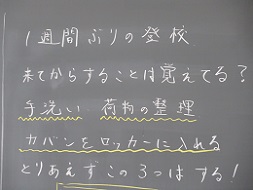 1週間ぶりの登校
来てからすることは覚えてる?
手洗い 荷物の整理
カバンをロッカーに入れる
とりあえずこの3つはする!